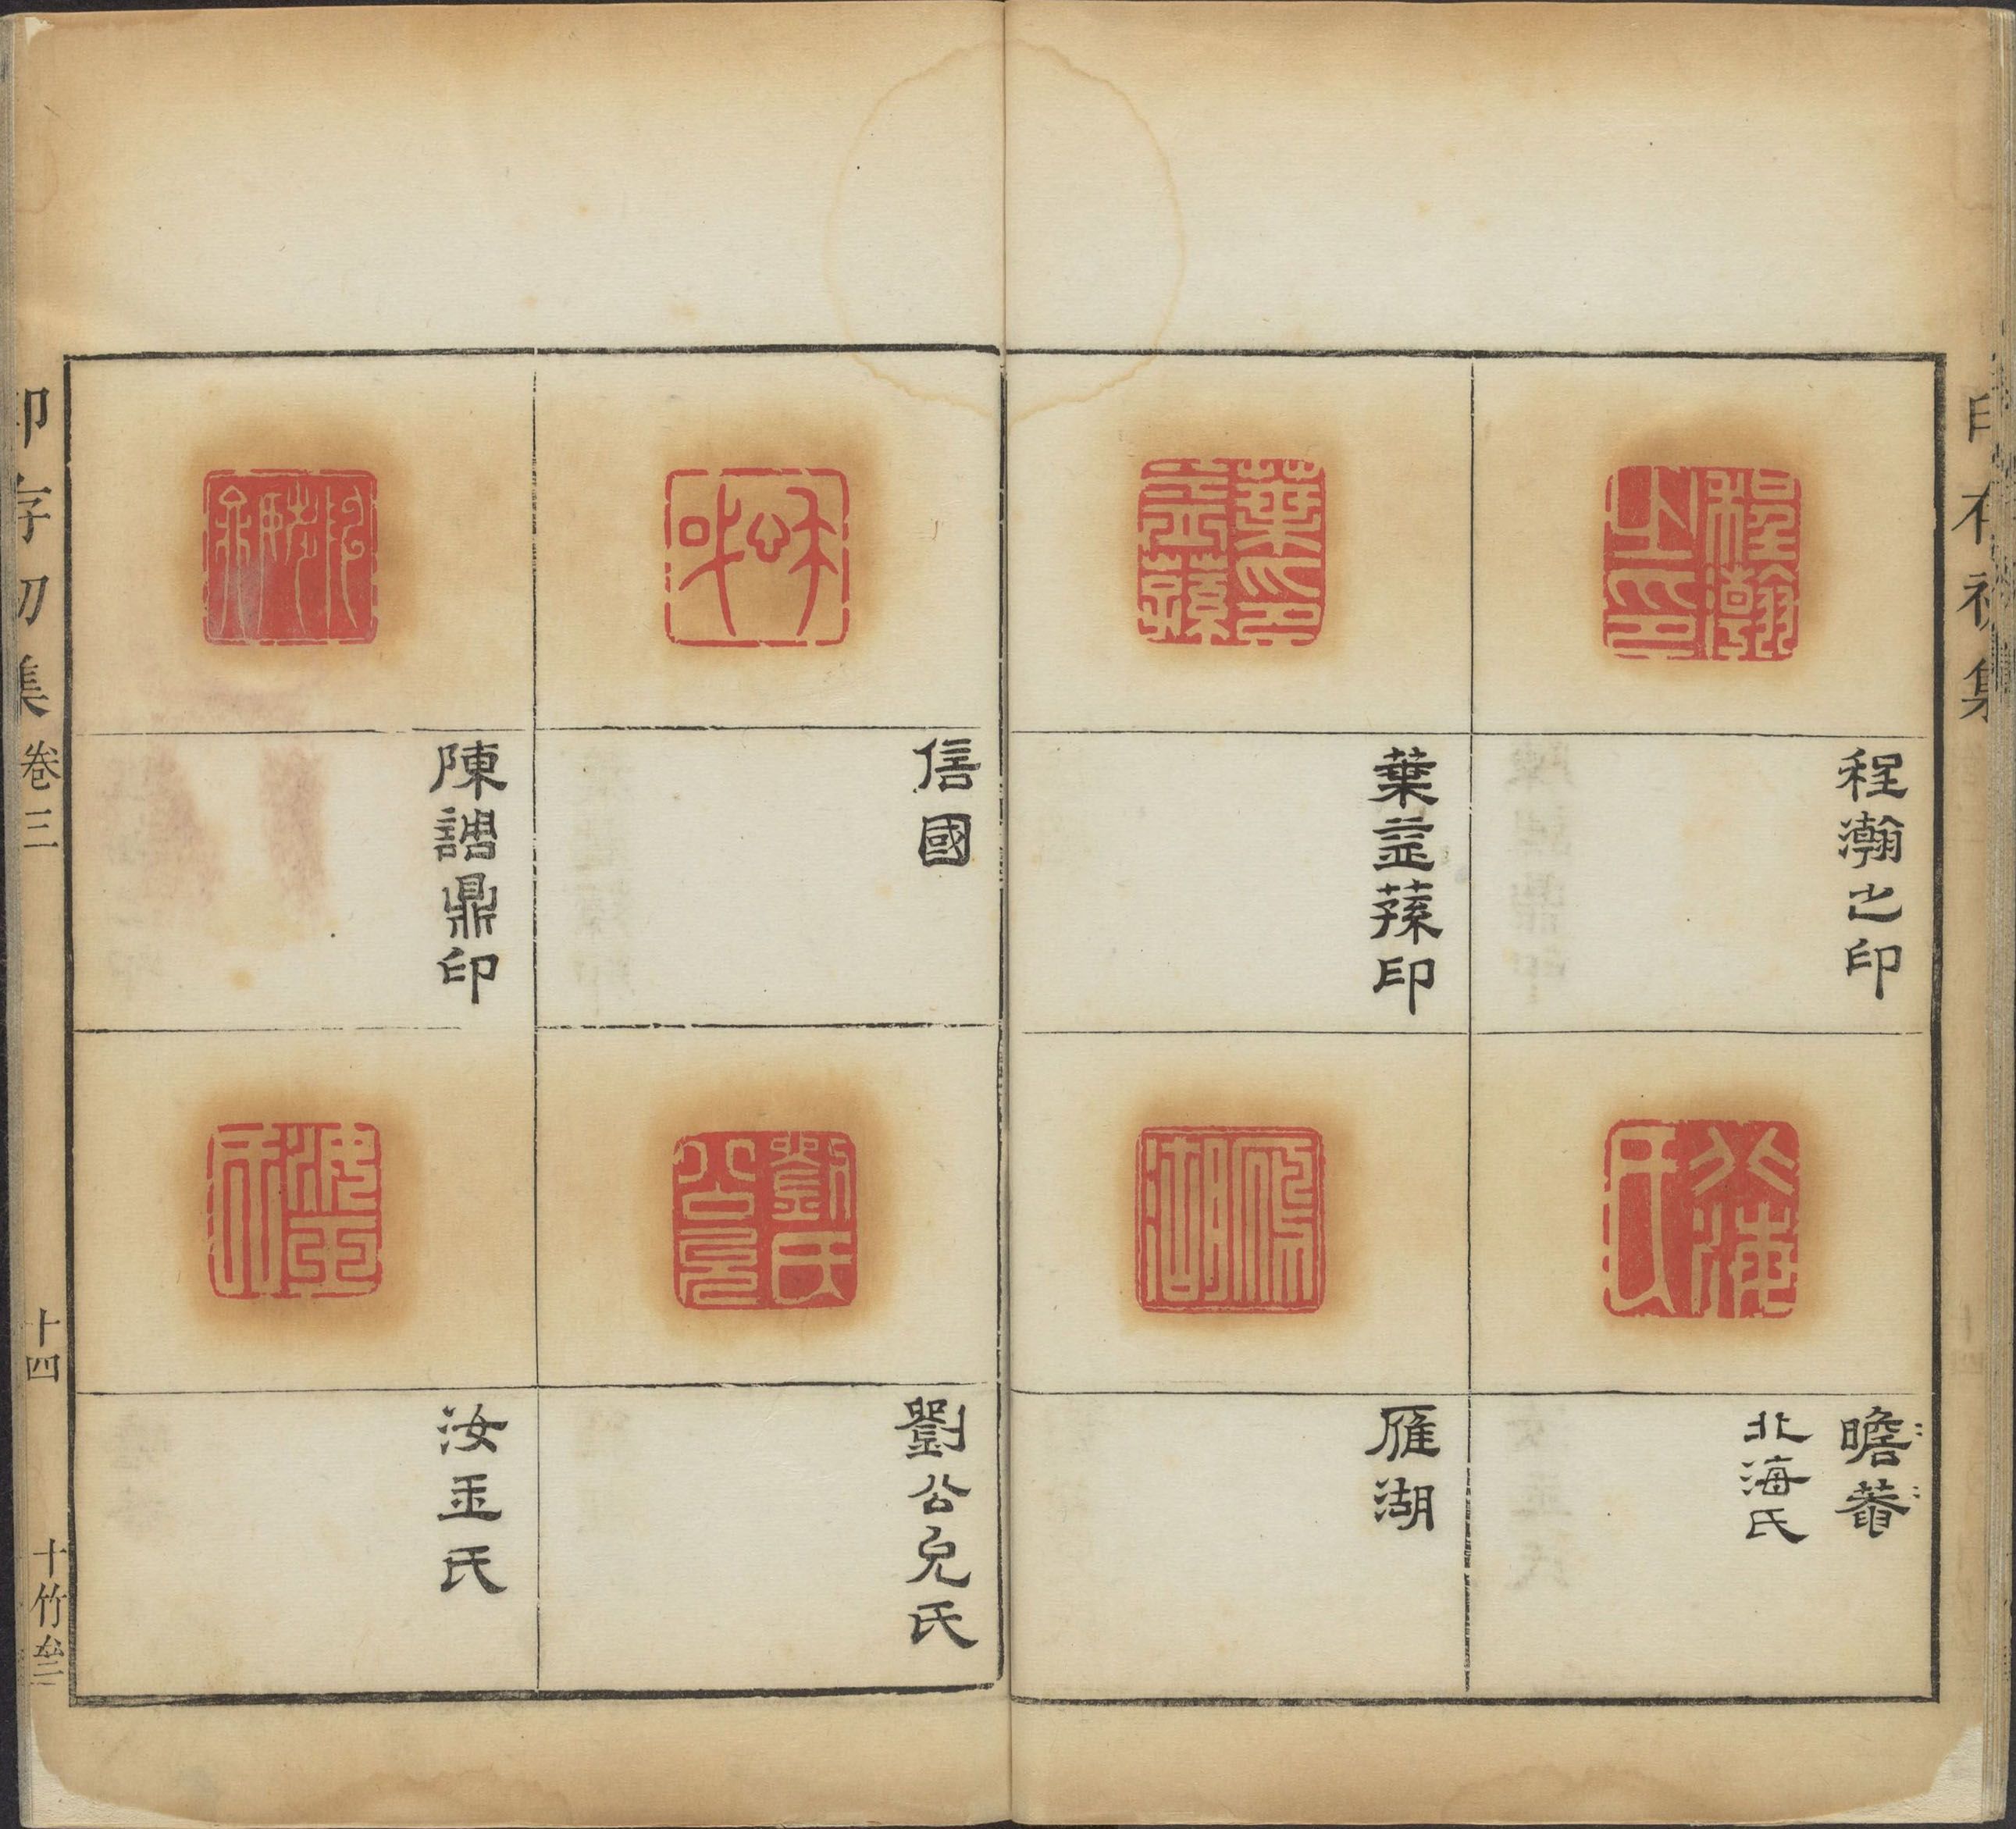 程瀚之印
瞻菴
北海氏
葉益蓀印
雁湖
信國
劉公兌氏
陳諎鼎印
汝玉氏
印存初集 卷三 十四 十竹